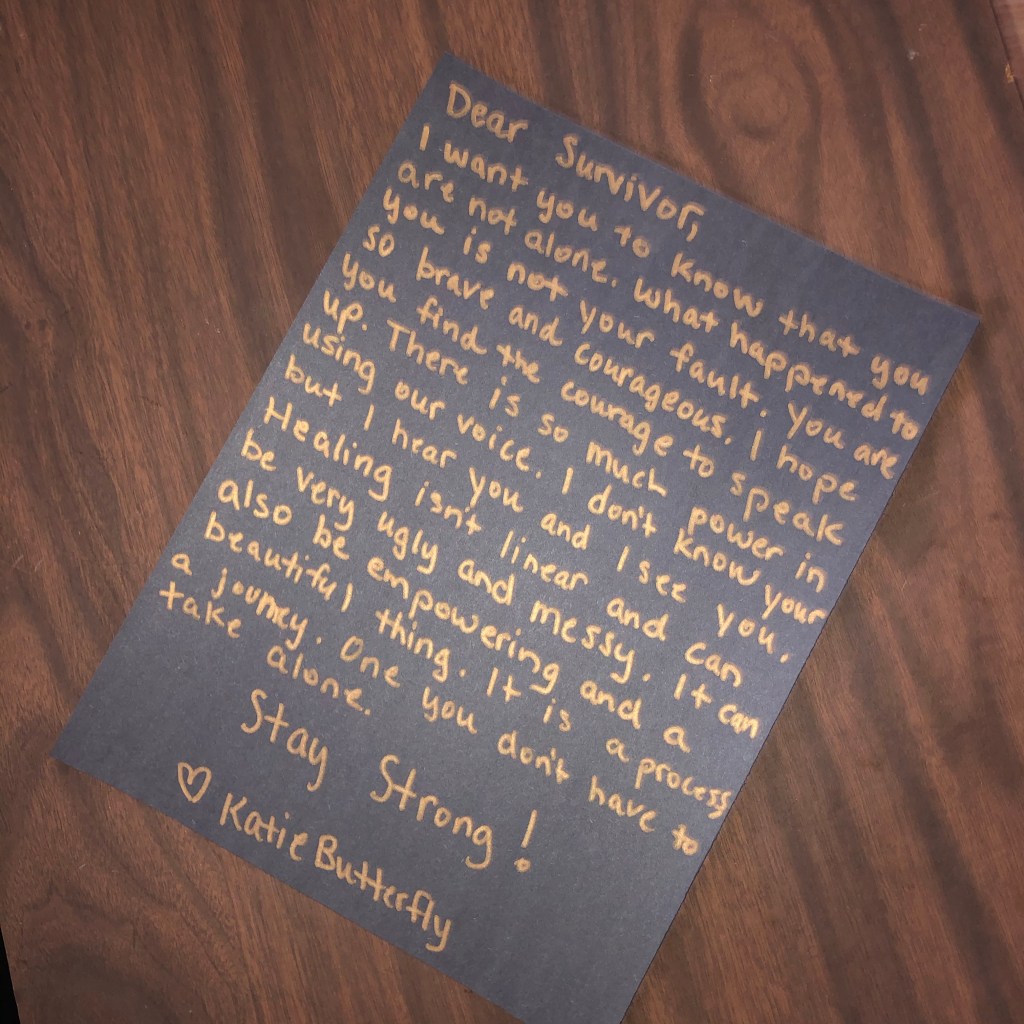 Dear Survivor,
I want you to know that you
are not alone. What happened to
you is not your fault. You are
so brave and courageous. I hope
you find the courage to speak
up. There is so much power in
using our voice. I don't know, your
but I hear you and I see you.
Healing isn't linear and can
be very ugly and messy. It can
also be empowering and a
beautiful thing. It is a process
a journey. One you don't have to
take alone.
Stay Strong!
♡ Katie Butterfly